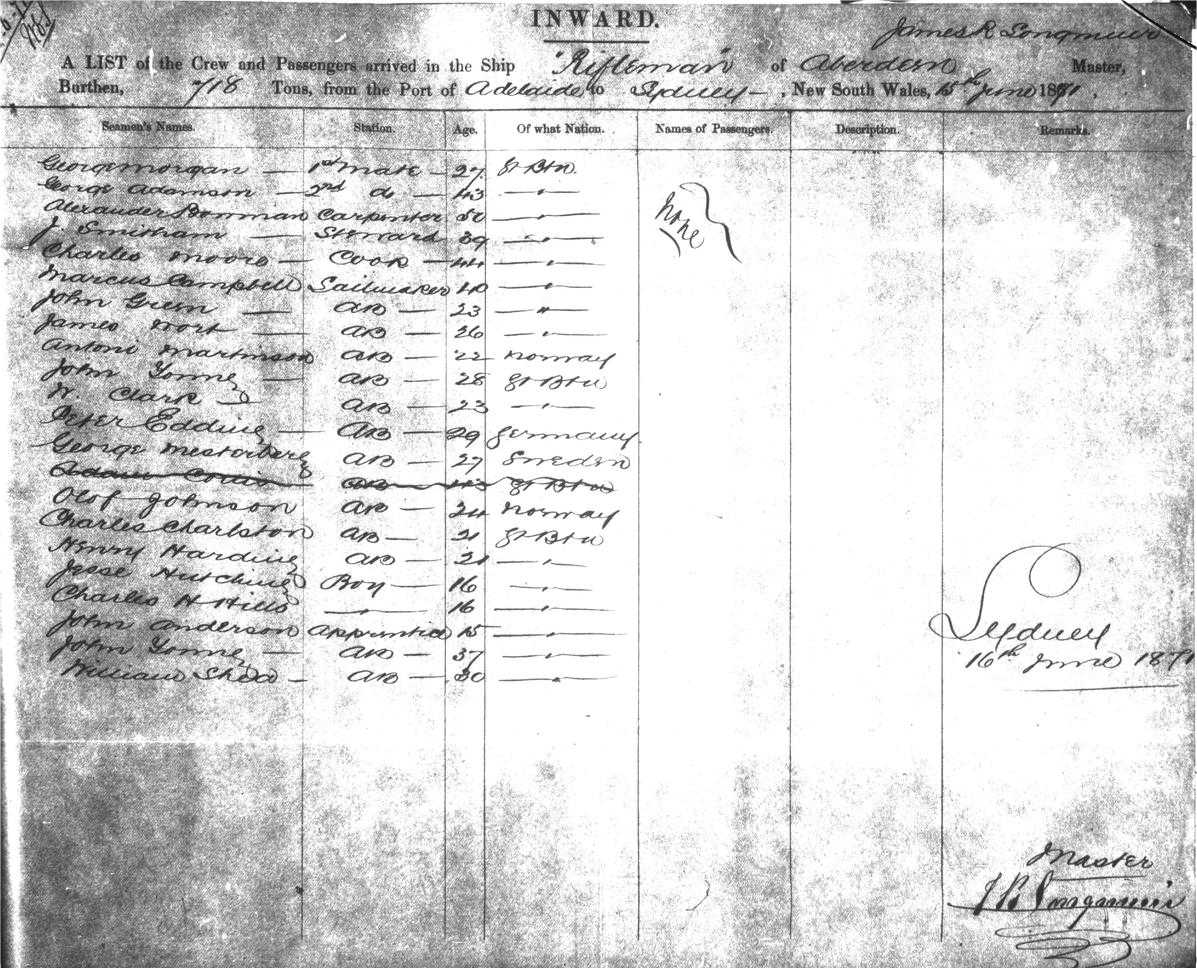 INWARD.
James R Longmuir
A LIST of the Crew and Passengers arrived in the Ship "Rifleman" of Aberdeen Master,
Burthen, 718 Tons, from the Port of Adelaide to Sydney, New South Wales, 15th June 1871.
Seamen's Names. Station. Age. Of what Nation. Names of Passengers. Description. Remarks.
George Morgan — 1st mate — 27 Gt Btn. none
George Adamson — 2nd do — 43 — " —
Alexander Bowman Carpenter 50 — " —
J Smitham — Steward 39 — " —
Charles Moore — Cook — 44 — " —
Marcus Campbell Sailmaker 40 — " —
John Green — AB — 23 — " —
James — AB — 26 — " —
Antoni Martinson AB — 22 Norway
John — AB — 28 Gt Btn
W. Clark — AB — 23 — " —
Peter — AB — 29 Germany
George AB — 27 Sweden
AB 43 Gt Btn
Olof Johnson AB — 24 Norway
Charles Charlston AB — 21 Gt Btn
Henry Harding AB — 21 — " —
Jesse Hutchins Boy — 16 — " —
Charles H Hills — " — 16 — " —
John Anderson Apprentice 15 — " —
John — AB — 37 — " —
William Shea — AB — 30 — " —
Sydney
16th June 1871
Master
J R Longmuir